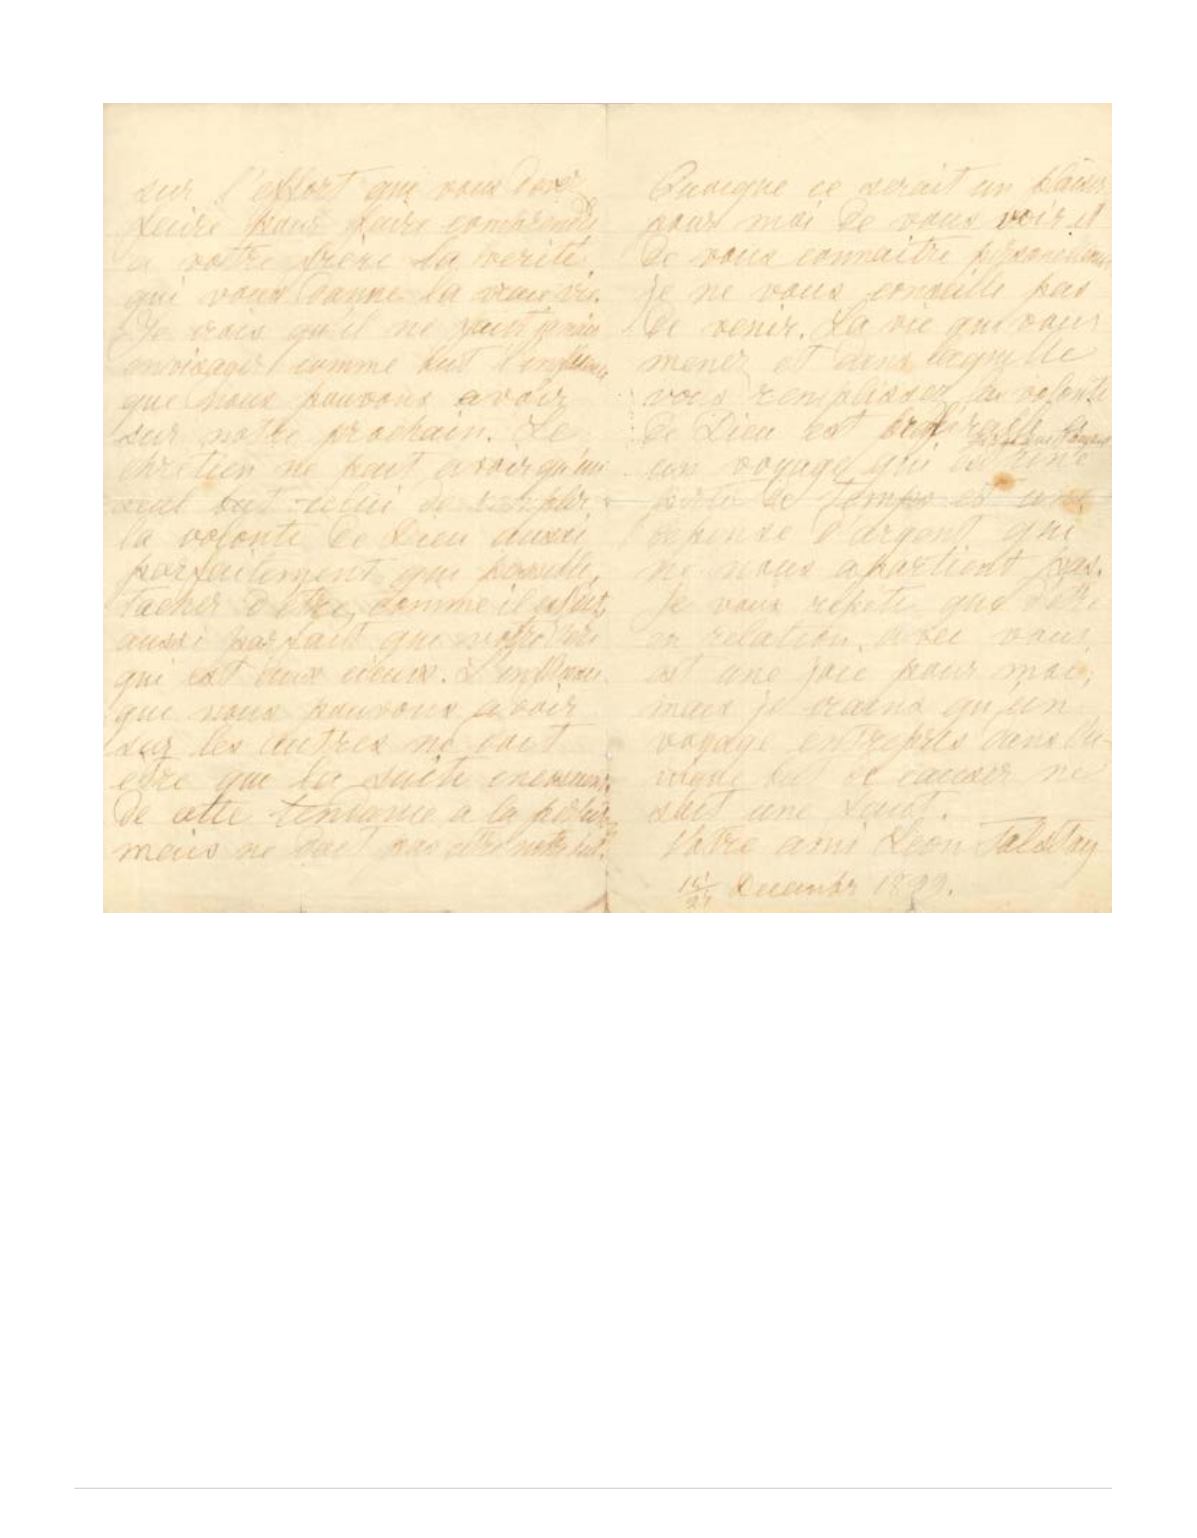 sur l'effort que vous devez
faire pour faire comprendre
a votre frère la verité
qui vous donne la vraie vie.
Je crois qu'il ne faut jamais
envisager comme but l'influence
que nous pouvons avoir
sur notre prochain. Le
chretien ne peut avoir qu'un
seul but celui de remplir
la volonte de Dieu aussi
parfaitement que possible,
tacher d'être, comme il est dit,
aussi parfait que notre Père
qui est aux cieux. L'influence
que nous pouvons avoir
sur les autres ne doit
être que la suite
de cette tendance a la
mais ne doit pas être notre but.
Quoique ce serait un plaisir
pour moi de vous voir et
de vous connaitre personellement
je ne vous conseille pas
de venir. La vie que vous
menez et dans laquelle
vous remplissez la volonté
de Dieu est
un voyage qui
perte de temps et une
depense d'argent qui
ne nous apartient pas.
Je vous répète que d'être
en relation avec vous
est une joie pour moi,
mais je crains qu'un
voyage entrepris dans l'u-
nique but de causer ne
soit une faute.
Votre ami Léon Tolstoy
15/27 Decembre 1899.